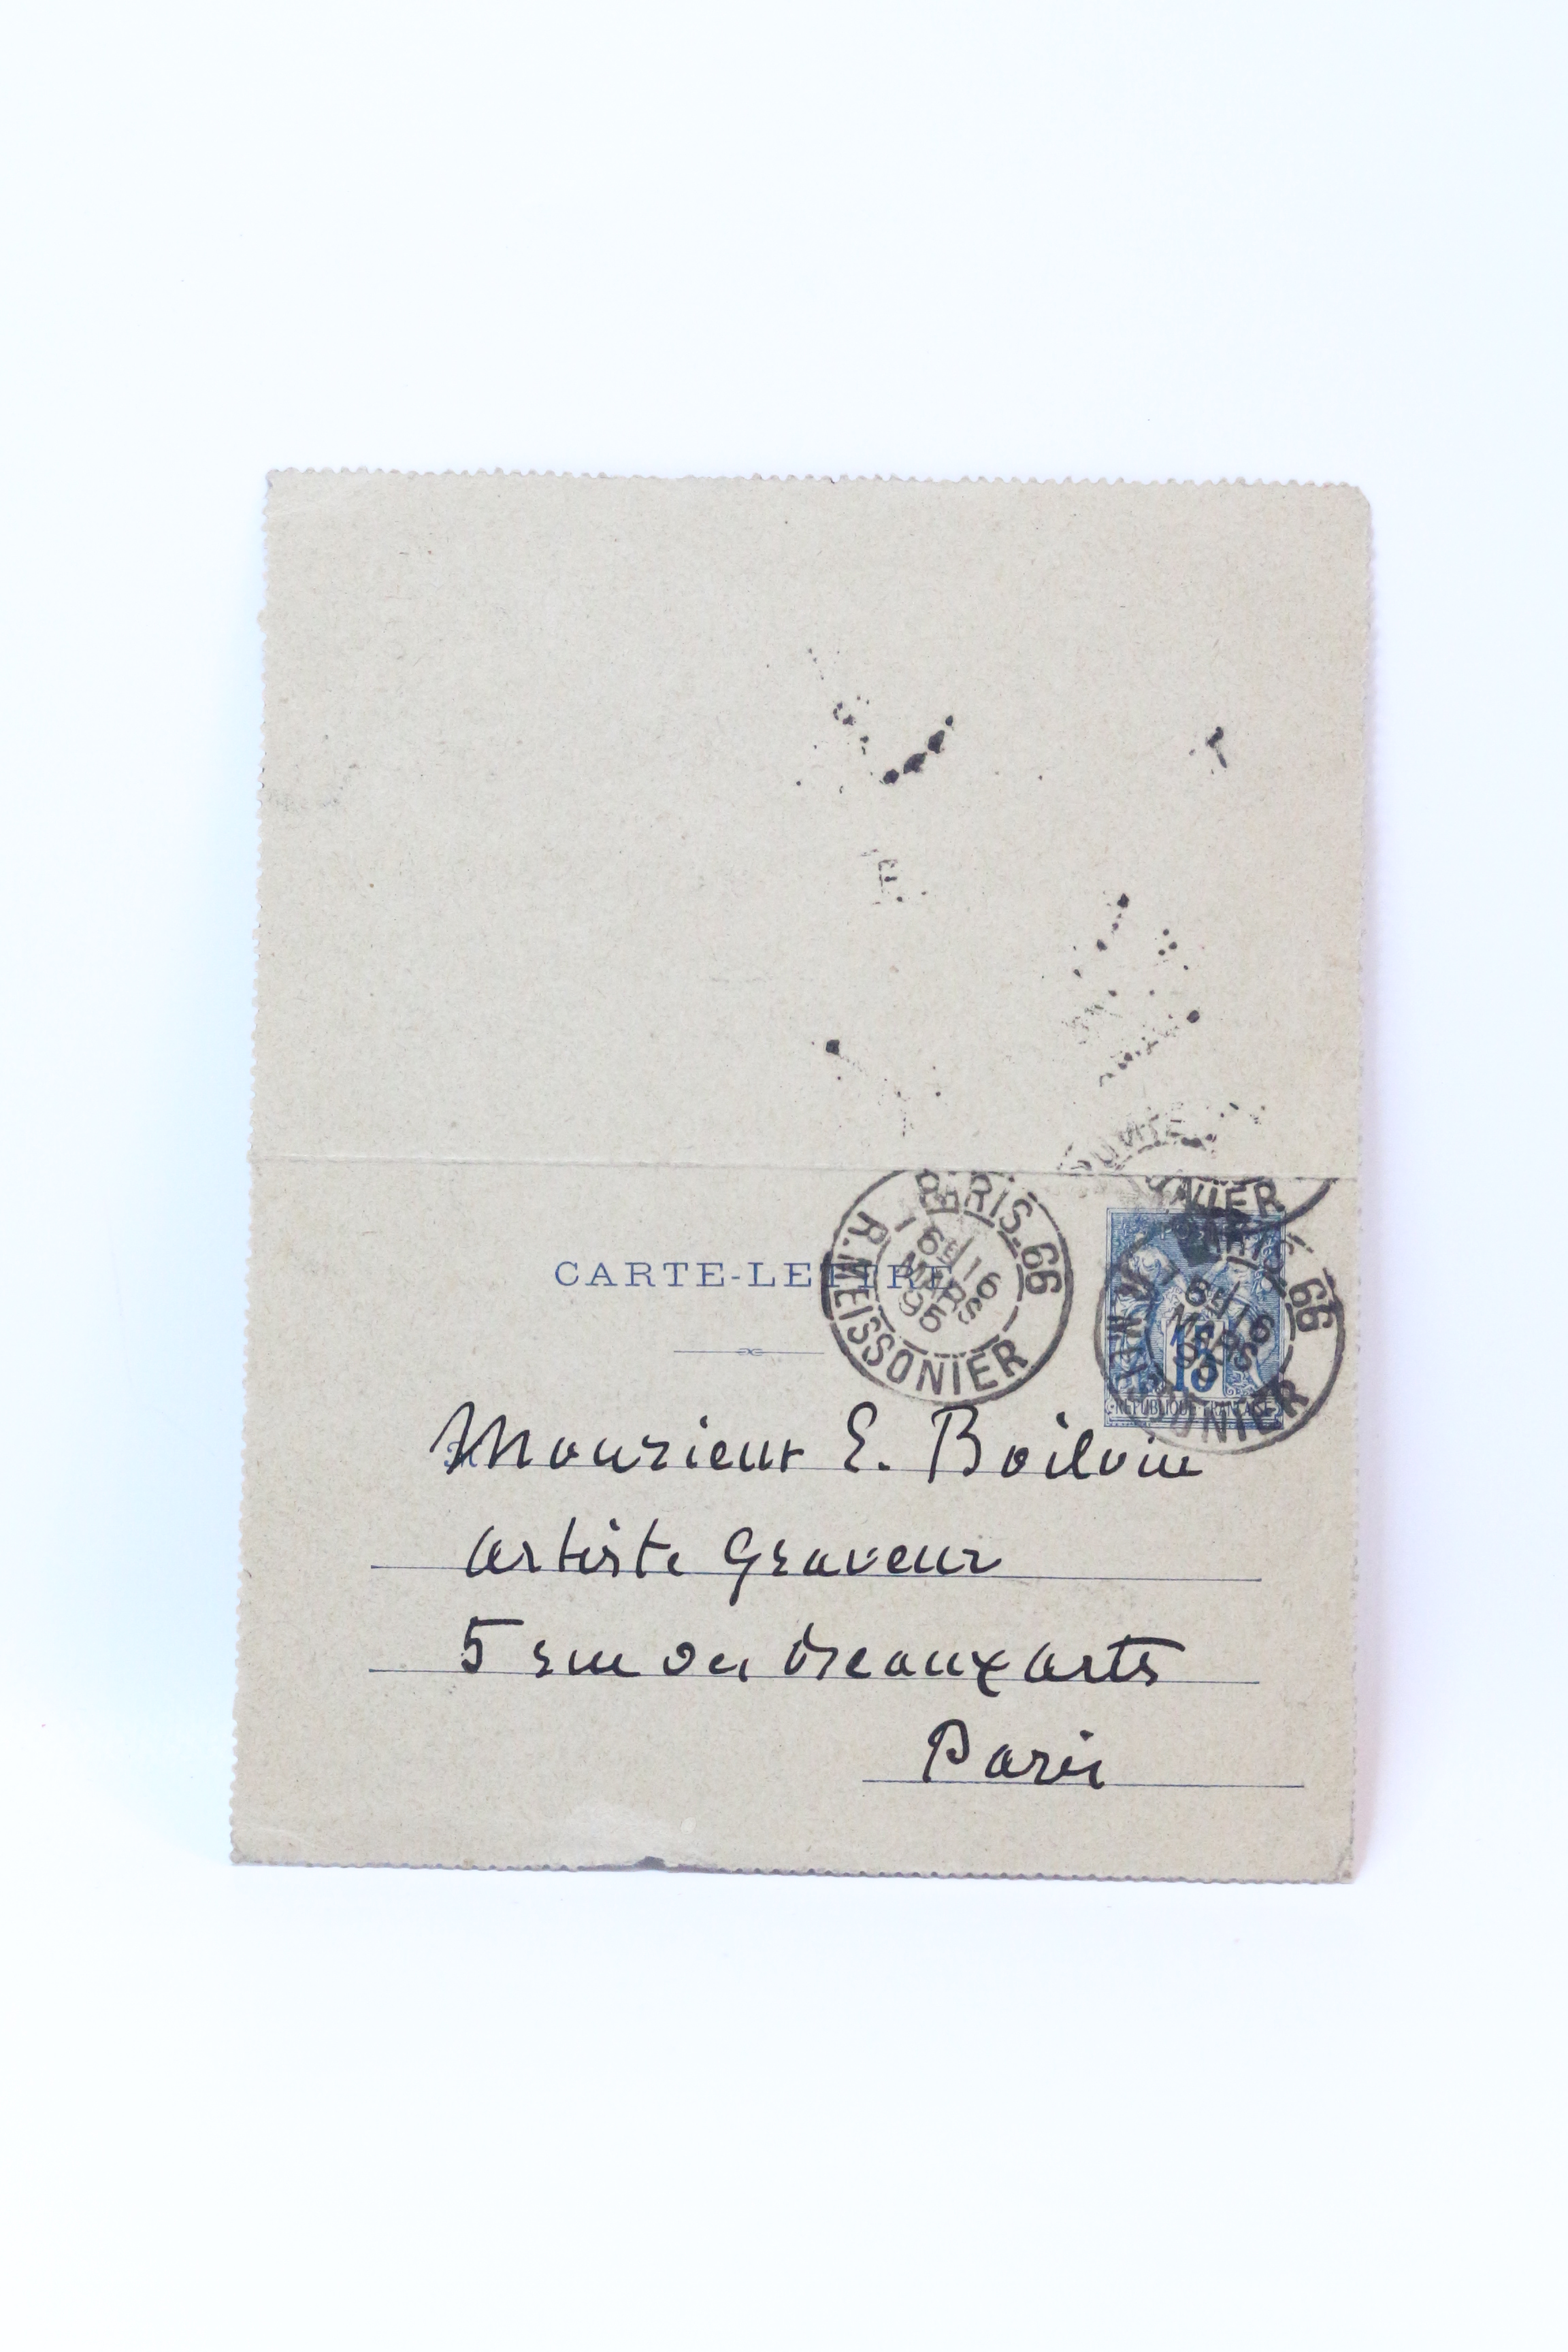 PARIS_66
6E/16
MARS
95
R. MEISSONIER
CARTE-LETTRE
PARIS 66
6E/16
MARS
95
R. MEISSONIER
15
REPUBLIQUE FRANÇAISE
Monsieur E. Boilvin
artiste graveur
5 rue des beaux arts
Paris